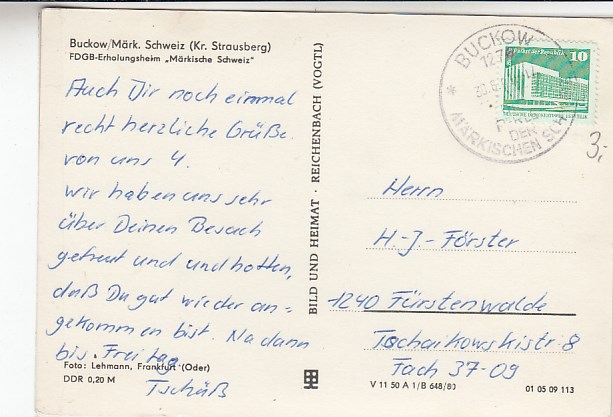 Buckow/Märk. Schweiz (Kr. Strausberg)
FDGB-Erholungsheim „Märkische Schweiz"
Auch Dir noch einmal
recht herzliche Grüße
von uns 4.
wir haben uns sehr
über Deinen Besuch
gefreut und und hoffen,
daß Du gut wieder an-
gekommen bist. Na dann
bis Freitag
Tschüß
Foto: Lehmann, Frankfurt (Oder)
DDR 0,20 M
BILD UND HEIMAT · REICHENBACH (VOGTL)
BUCKOW
PERLE
DER
MÄRKISCHEN SCHWEIZ
Palast der Republik
10
3,-
Herrn
H.-J.-Förster
1240 Fürstenwalde
Tschaikowskistr. 8
Fach 37-09
V 11 50 A 1/B 648/80
01 05 09 113